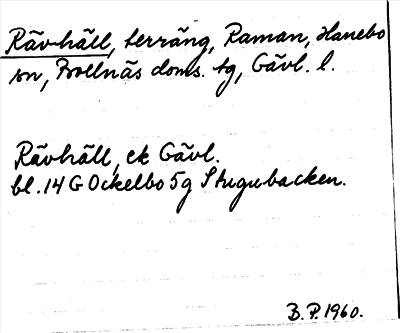 Rävhäll, terräng, Raman, Hanebo
sn, Bollnäs doms. tg, Gävl. l.
Rävhäll, ek Gävl.
bl. 14 G Ockelbo 5g Stugubacken.
B. P. 1960.